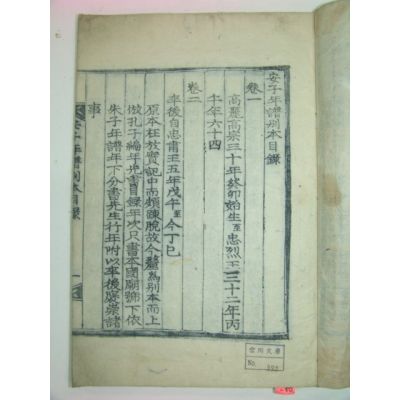 安子年譜別本目錄
卷一
高麗高宗三十年癸卯始生至忠烈王三十二年丙
午年六十四
卷二
卒後自忠肅王五年戊午至今丁巳
原本在放實記中而頗踈脫故今釐為別本而上
倣孔子編年先書目錄年次只書本國廟號下依
朱子年譜年下分書先生行年附以卒後褒崇諸
事
安子年譜別本目錄
一
No.